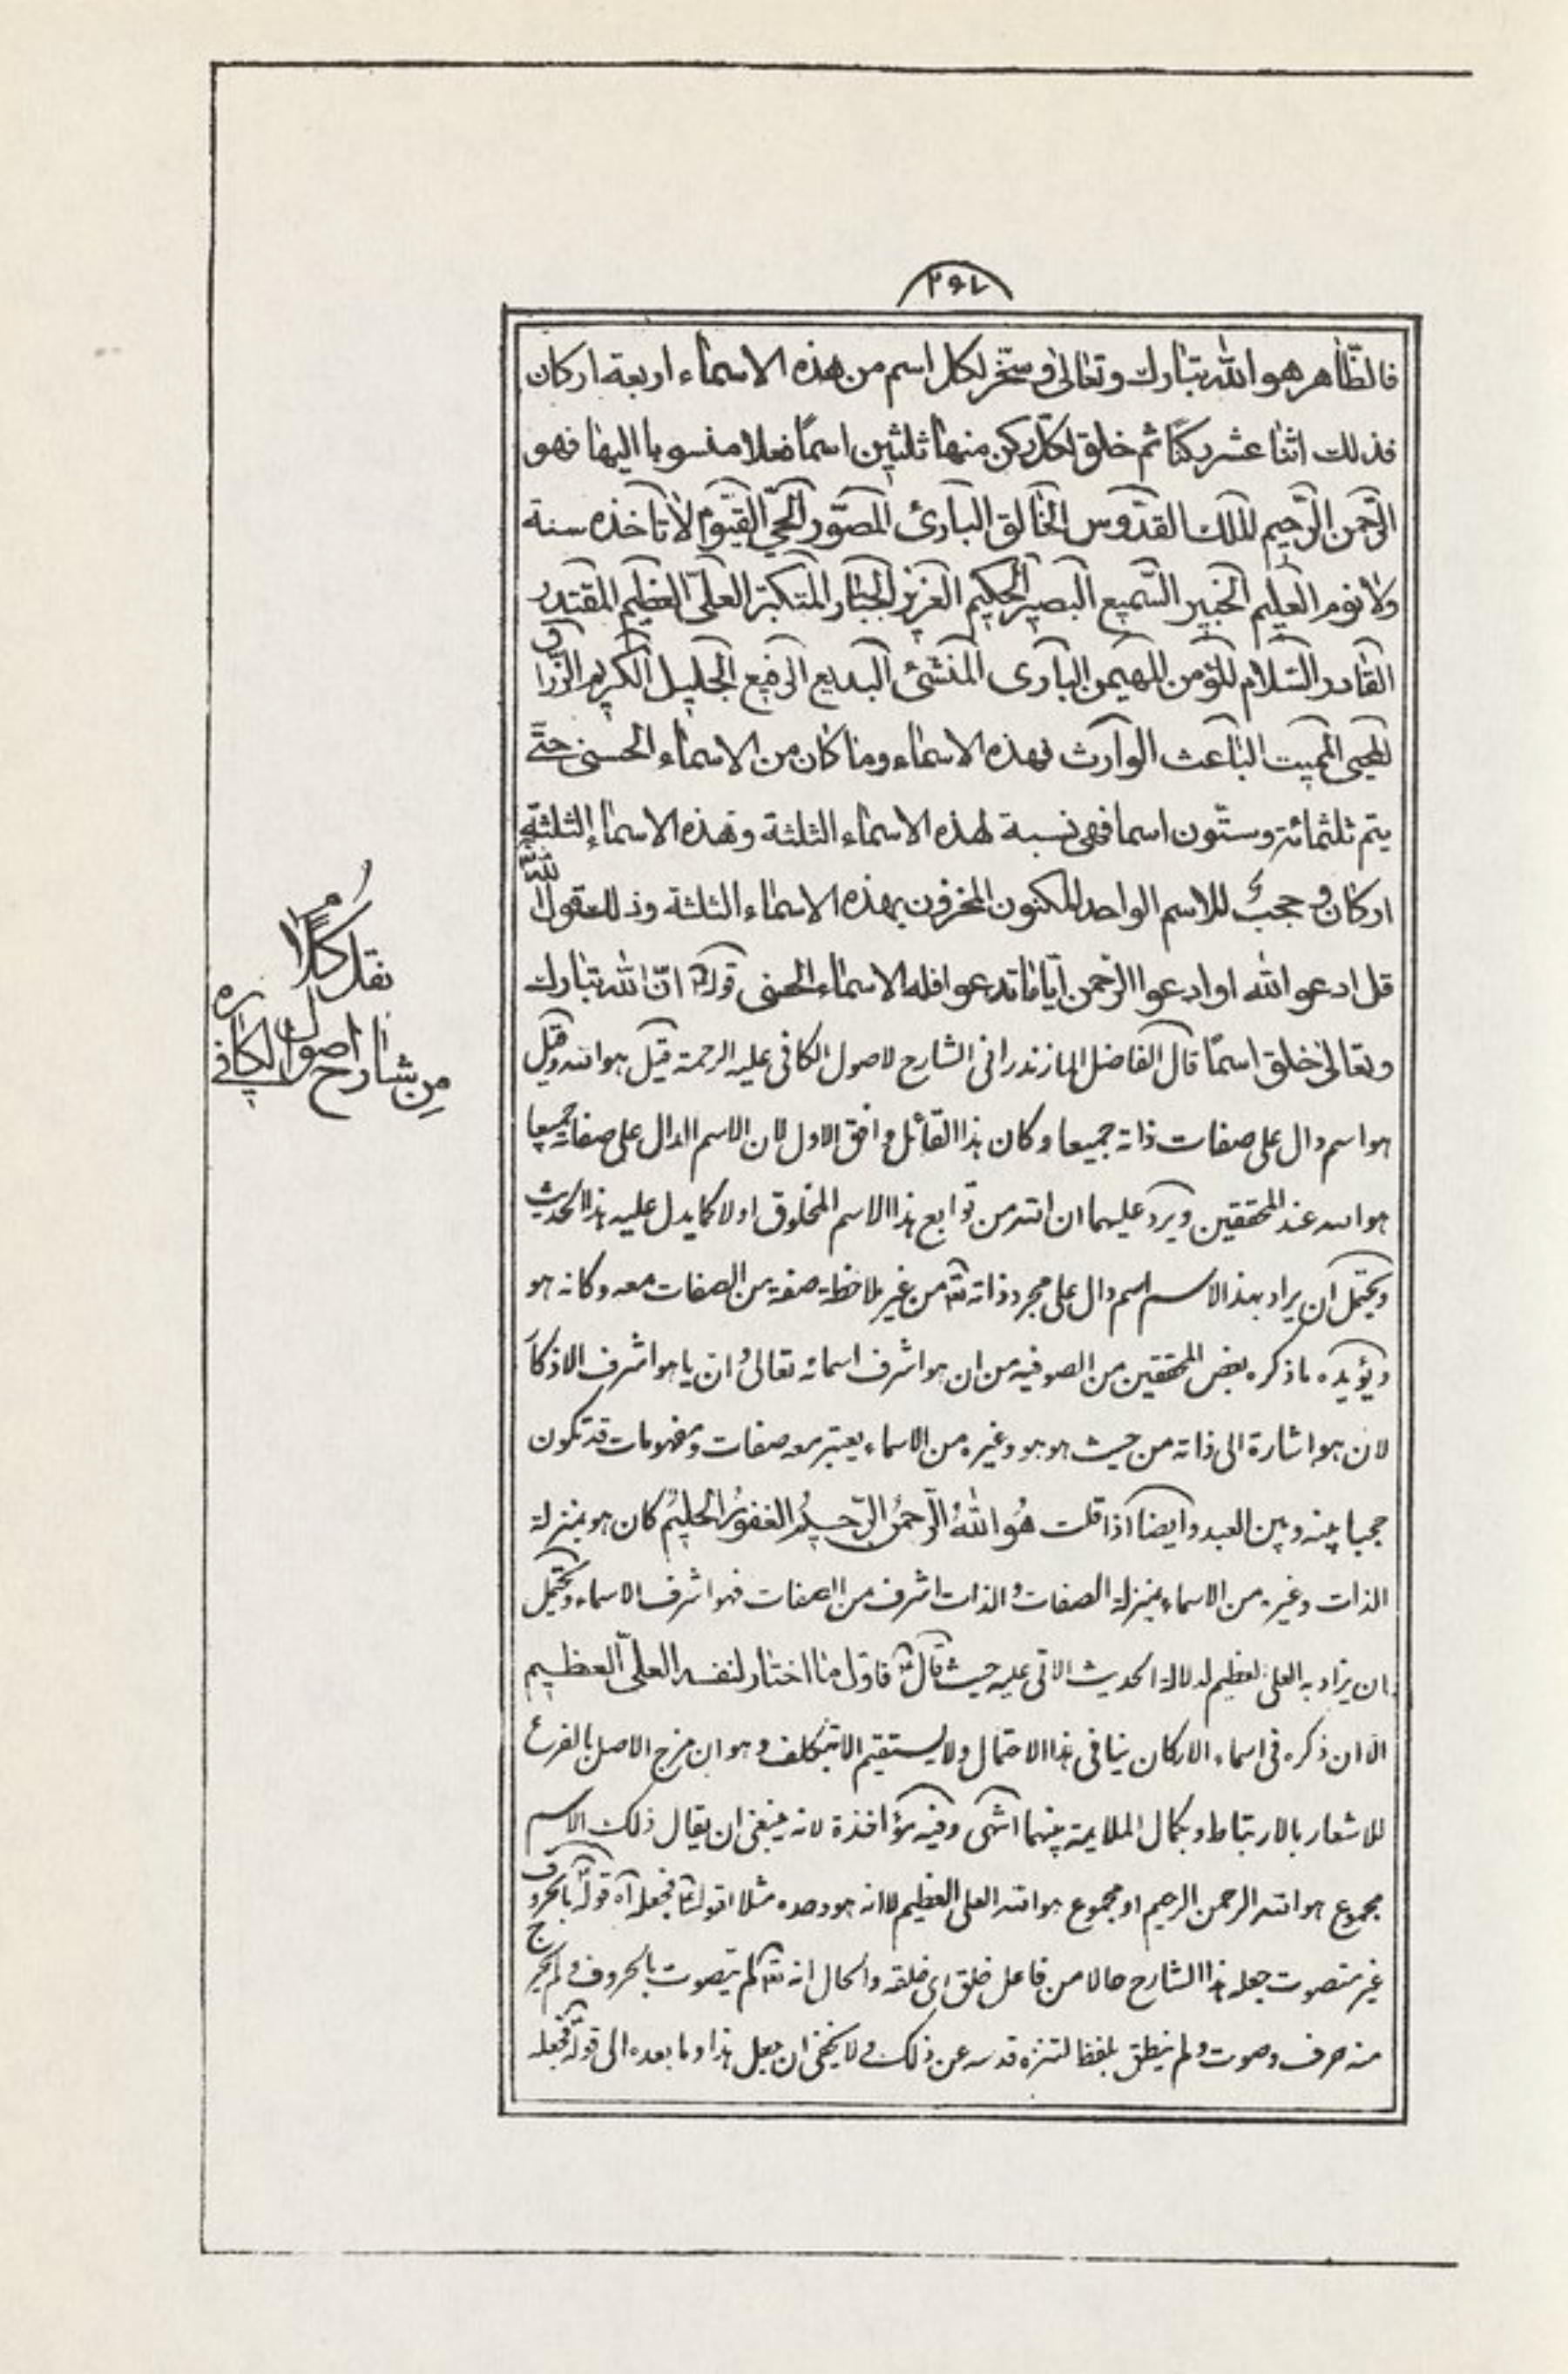 ٢٩٧
فالظّاهر هو الله تبارك وتعالى و سخّر لكل اسم من هذه الاسماء اربعة اركان
فذلك اثنا عشر ركنًا ثم خلق لكلّ ركن منها ثلثين اسمًا فعلا منسوبا اليها فهو
الرّحمن الرّحيم الملك القدّوس الخالق البارئ المصوّر الحيّ القيّوم لا تاخذه سنة
ولا نوم العليم الخبير السّميع البصير الحكيم العزيز الجبّار المتكبّر العلىّ العظيم المقتدر
القادر السّلام المؤمن المهيمن البارى المنشئ البديع الرفيع الجليل الكريم الرّزاق
المحيى المميت الباعث الوارث فهذه الاسماء وما كان من الاسماء الحسنى حتّى
يتم ثلثمائة وستّون اسما فهى نسبة لهذه الاسماء الثلثة وهذه الاسماء الثلثة
اركان و حجبٌ للاسم الواحد المكنون المخزون بهذه الاسماء الثلثة وذلك قول الله
قل ادعوا الله او ادعوا الرّحمن ايّاما تدعوا فله الاسماء الحسنى قوله انّ الله تبارك
وتعالى خلق اسمًا قال الفاضل المازندرانى الشارح لاصول الكافى عليه الرحمة قيل هو الله وقيل
هو اسم دال على صفات ذاته جميعا وكان هذا القائل وافق الاول لان الاسم الدال على صفاته جميعا
هو الله عند المحققين ويرد عليهما ان الله من توابع هذا الاسم المخلوق اولا كما يدل عليه هذا الحديث
ويحتمل ان يراد بهذ الاسم اسم دال على مجرد ذاته تعم من غير ملاحظة صفة من الصفات معه وكانه هو
ويؤيده ما ذكره بعض المحققين من الصوفيه من ان هو اشرف اسمائه تعالى و ان يا هو اشرف الاذكار
لان هو اشارة الى ذاته من حيث هو هو وغيره من الاسماء يعتبر معه صفات ومفهومات قد تكون
حجبا بينه وبين العبد وايضا اذا قلت هُو اللهُ الرّحمنُ الرّحيمُ الغفورُ الحليمُ كان هو بمنزلة
الذات وغيره من الاسماء بمنزلة الصفات و الذات اشرف من الصفات فهو اشرف الاسماء ويحتمل
ان يراد به العلى العظيم لدلالة الحديث الاتى عليه حيث قال فاول ما اختار لنفسه العلىّ العظيم
الا ان ذكره فى اسماء الاركان ينافى هذا الاحتمال ولا يستقيم الا بتكلف وهو ان مزج الاصل بالفرع
للاشعار بالارتباط و بكمال الملايمة بينهما انتهى وفيه مؤاخذة لانه ينبغى ان يقال ذلك الاسم
مجموع هو الله الرحمن الرحيم او مجموع هو الله العلى العظيم لا انه هو وحده مثلا فجعله آه قوله بالحروف
غير متصوت جعله هذا الشارح حالا من فاعل خلق اى خلقه والحال انه تعم لم يتصوت بالحروف و لم يخرج
منه حرف وصوت و لم ينطق بلفظ لتنزه قدسه عن ذلك و لا يخفى ان جعل هذا وما بعده الى قوله فجعله
نقل كلام
من شارح اصول الكافى ره